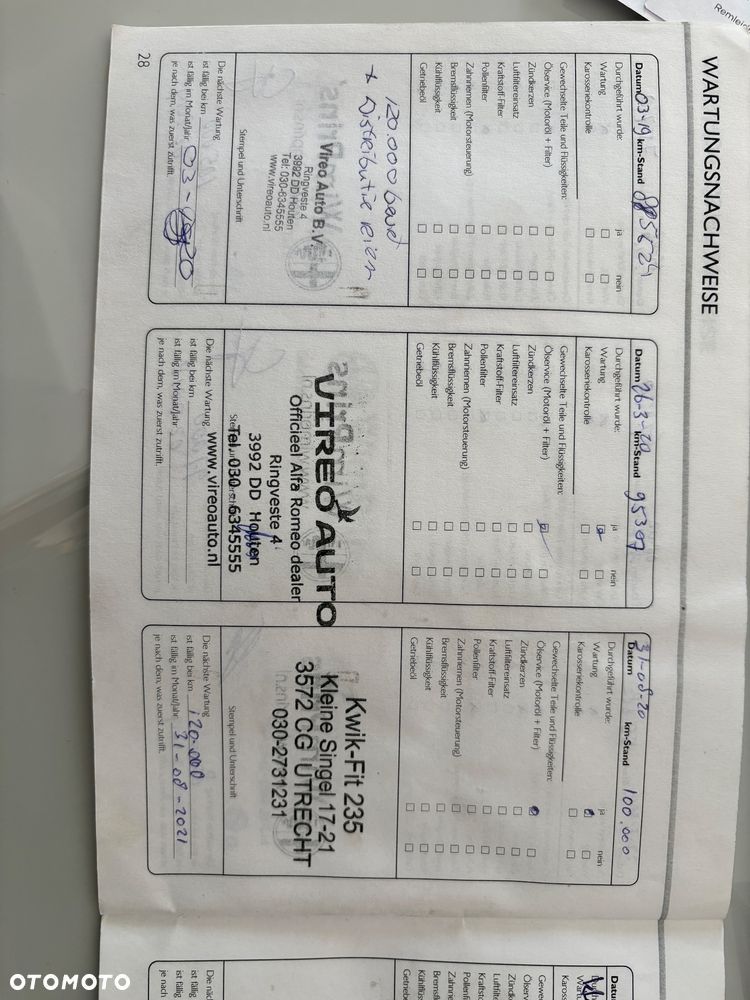 WARTUNGSNACHWEISE
Datum 03-19 km-Stand
Durchgeführt wurde: ja nein
Wartung
Karosseriekontrolle
Gewechselte Teile und Flüssigkeiten:
Ölservice (Motoröl + Filter)
Zündkerzen
Luftfiltereinsatz
Kraftstoff-Filter
Pollenfilter
Zahnriemen (Motorsteuerung)
Bremsflüssigkeit
Kühlflüssigkeit
Getriebeöl
120.000 beurt
+ Distributie riem
Vireo Auto B.V.
Ringveste 4
3992 DD Houten
Tel: 030-6345555
www.vireoauto.nl
Stempel und Unterschrift
Die nächste Wartung
ist fällig bei km
ist fällig im Monat/Jahr 03-2020
je nach dem, was zuerst zutrifft.
28
Datum 26-3-20 km-Stand 95307
Durchgeführt wurde: ja nein
Wartung
Karosseriekontrolle
Gewechselte Teile und Flüssigkeiten:
Ölservice (Motoröl + Filter)
Zündkerzen
Luftfiltereinsatz
Kraftstoff-Filter
Pollenfilter
Zahnriemen (Motorsteuerung)
Bremsflüssigkeit
Kühlflüssigkeit
Getriebeöl
VIREO AUTO
Officieel Alfa Romeo dealer
Ringveste 4
3992 DD Houten
Tel. 030-6345555
www.vireoauto.nl
Die nächste Wartung
ist fällig bei km
ist fällig im Monat/Jahr
je nach dem, was zuerst zutrifft.
31-08-20 100.000
Datum km-Stand
Durchgeführt wurde: ja nein
Wartung
Karosseriekontrolle
Gewechselte Teile und Flüssigkeiten:
Ölservice (Motoröl + Filter)
Zündkerzen
Luftfiltereinsatz
Kraftstoff-Filter
Pollenfilter
Zahnriemen (Motorsteuerung)
Bremsflüssigkeit
Kühlflüssigkeit
Getriebeöl
Kwik-Fit 235
Kleine Singel 17-21
3572 CG UTRECHT
030-2731231
Stempel und Unterschrift
Die nächste Wartung
ist fällig bei km 120.000
ist fällig im Monat/Jahr 31-08-2021
je nach dem, was zuerst zutrifft.
OTOMOTO